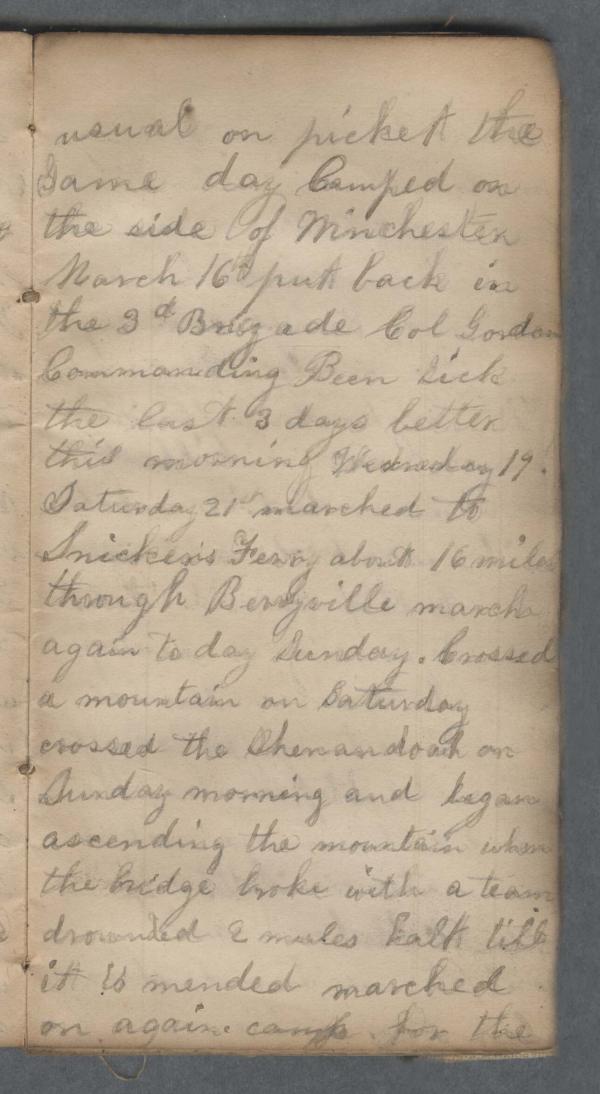 usual on picket the
Same day Camped on
the side of Winchester
March 16th put back in
the 3d Brigade Col Gordon
Commanding Been Sick
the last 3 days better
this morning Wednesday 19.
Saturday 21st marched to
Snickers Ferry about 16 miles
through Berryville march
again to day Sunday. Crossed
a mountain on Saturday
crossed the Shenandoah on
Sunday morning and began
ascending the mountain when
the bridge broke with a team
drownded 2 mules halt till
it is mended marched
on again. camp for the